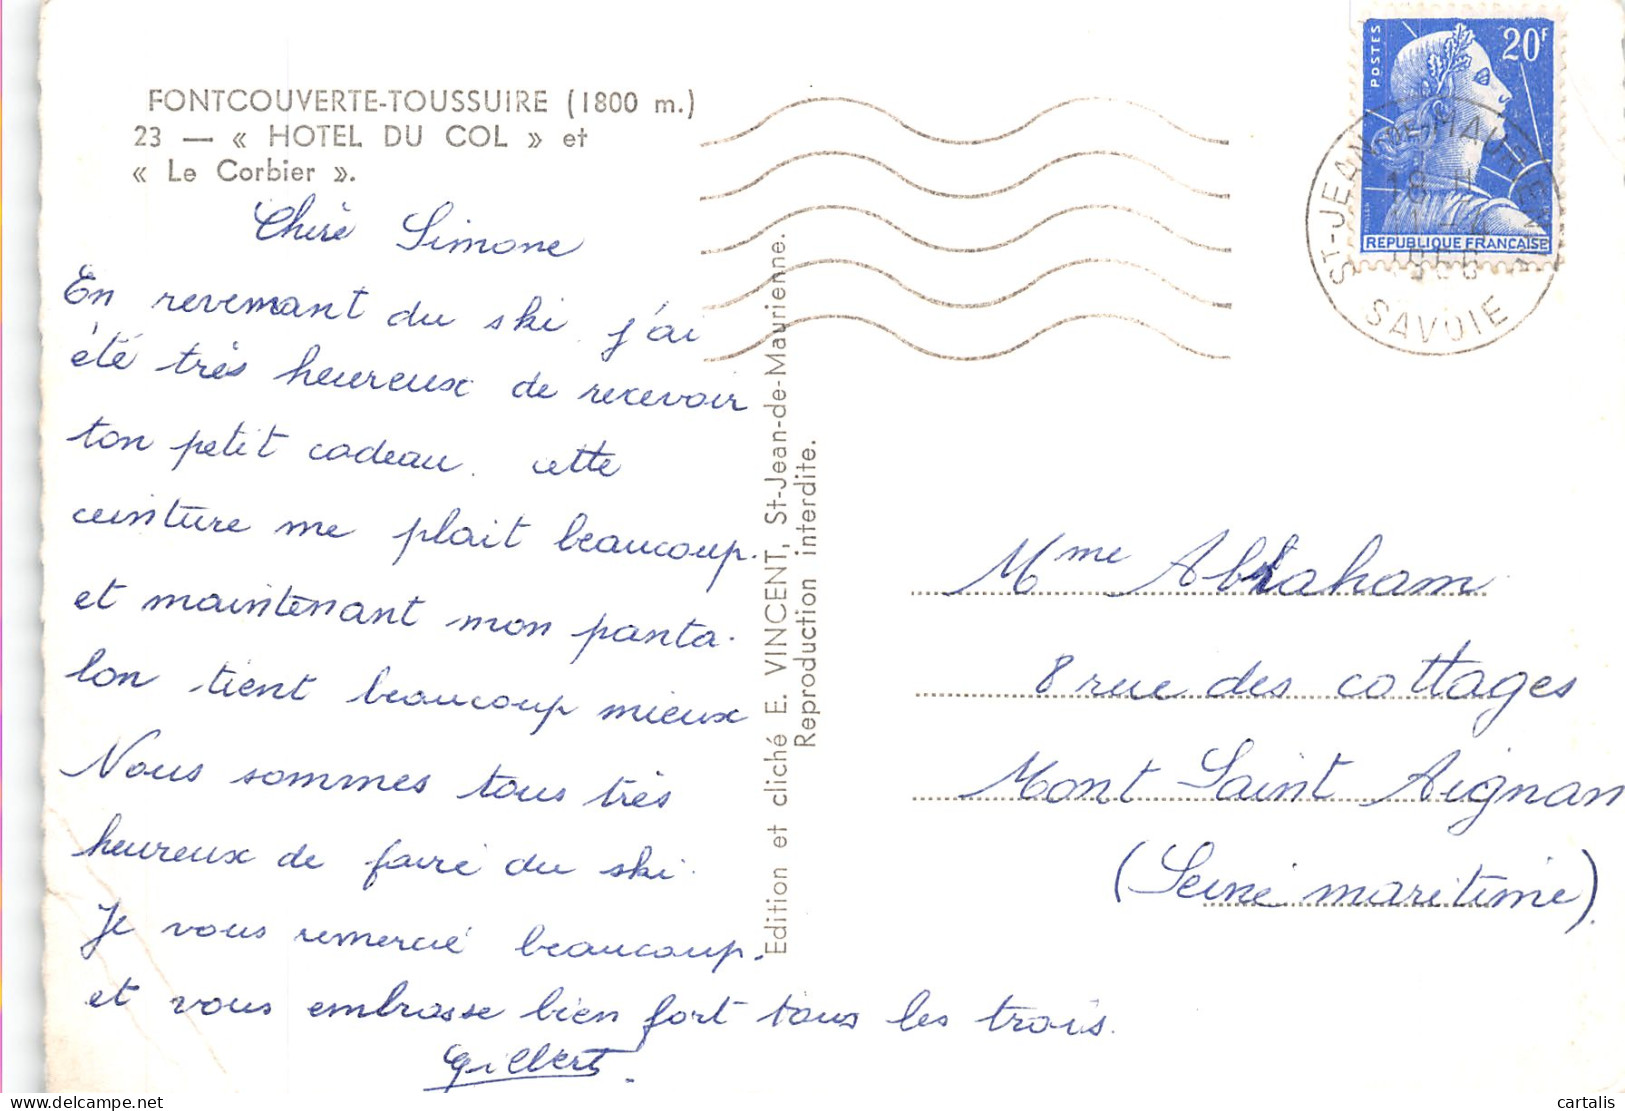 FONTCOUVERTE-TOUSSUIRE (1800 m.)
23 — « HOTEL DU COL » et
« Le Corbier ».
Chère Simone
En revenant du ski j'ai
été très heureux de recevoir
ton petit cadeau. cette
ceinture me plait beaucoup.
et maintenant mon panta-
lon tient beaucoup mieux
Nous sommes tous très
heureux de faire du ski.
Je vous remercie beaucoup.
et vous embrasse bien fort tous les trois.
Gilbert.
Edition et cliché E. VINCENT, St-Jean-de-Maurienne.
Reproduction interdite.
POSTES
20F
REPUBLIQUE FRANÇAISE
ST-JEAN-DE-MAURIENNE
18
SAVOIE
Mme Abraham
8 rue des cottages
Mont Saint Aignan
(Seine maritime).
delcampe.net
cartalis